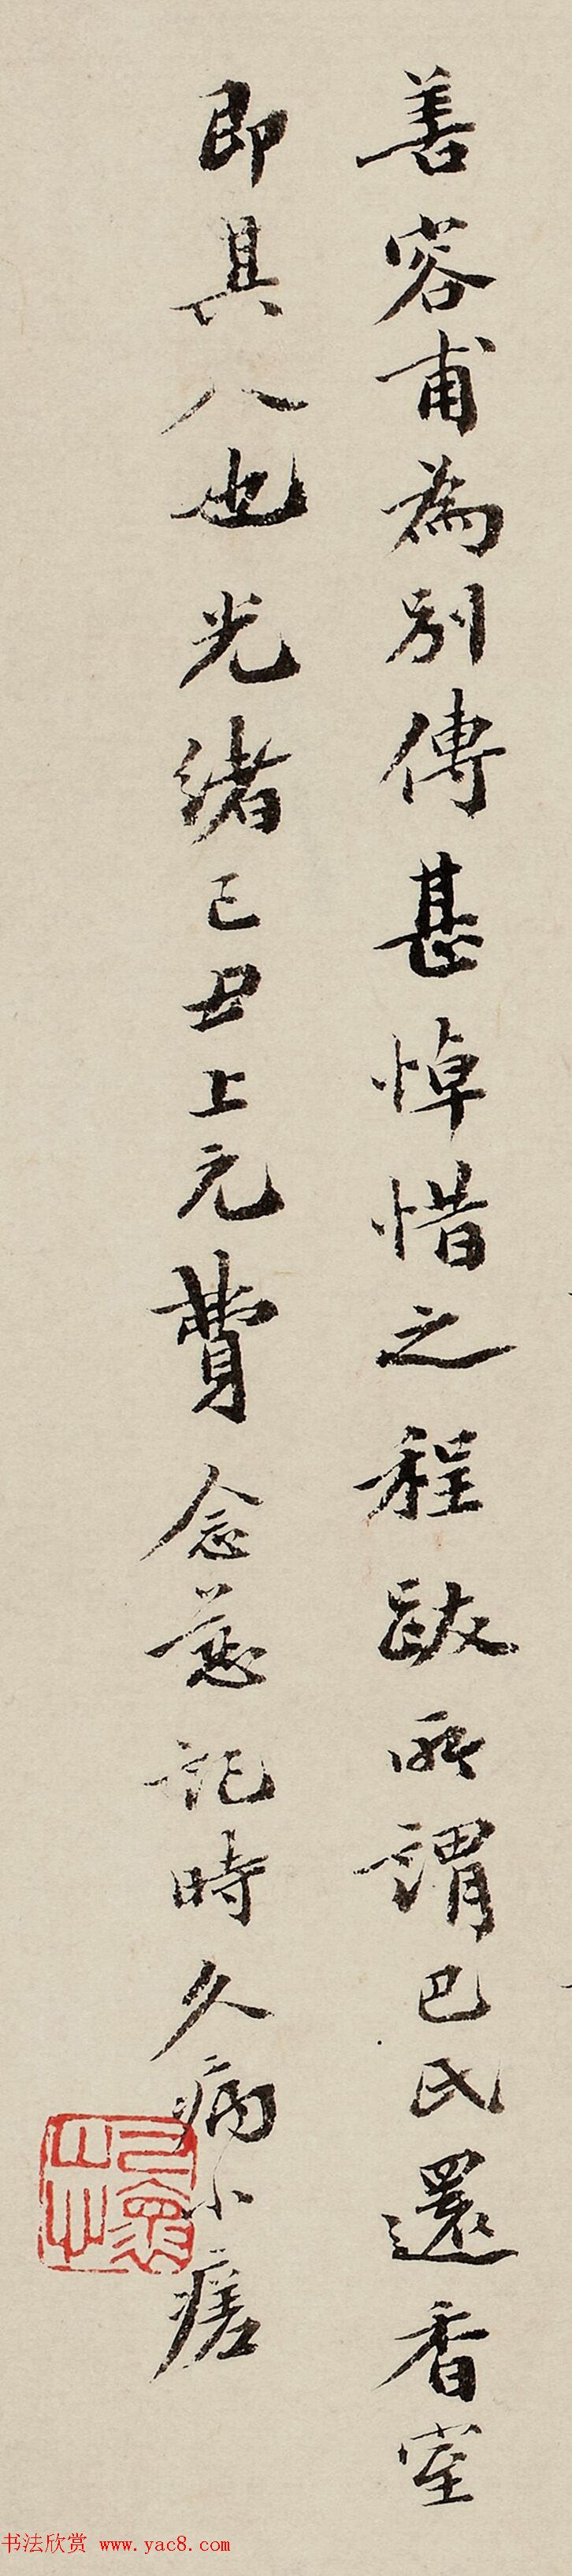 善容甫為別傳甚悼惜之程跋所謂巴氏還香室
即其人也光緒己丑上元費念慈記時久病小瘥
书法欣赏 www.yac8.com